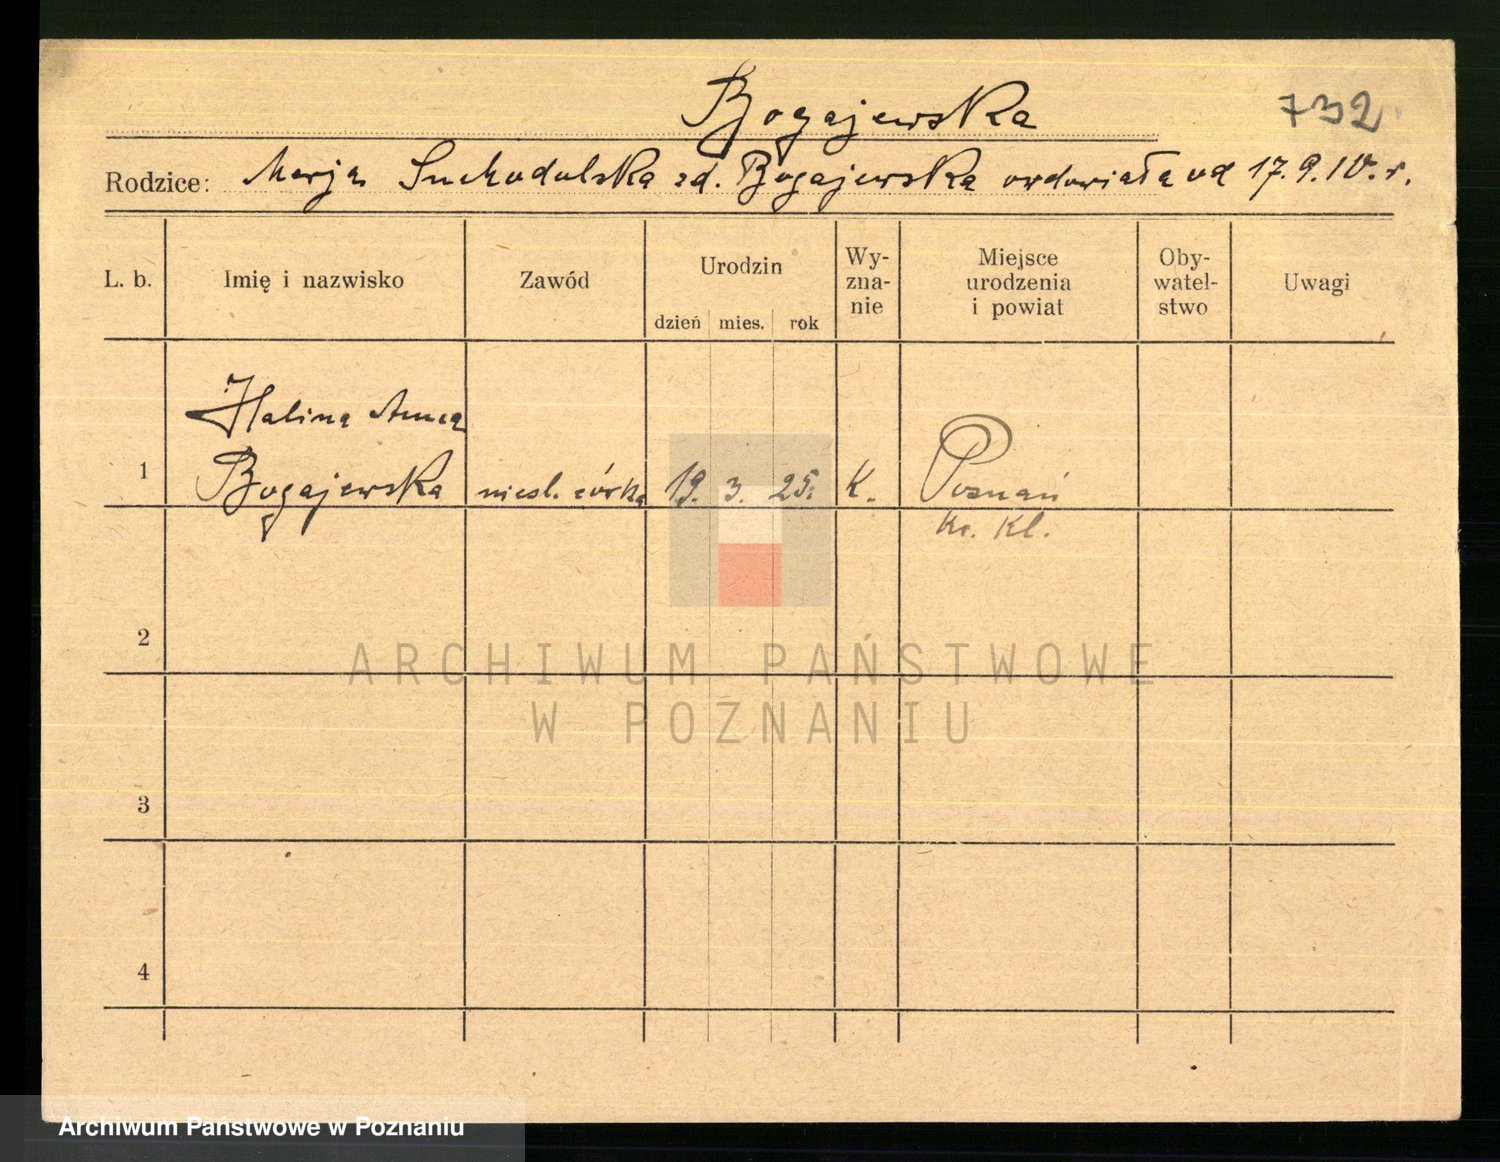 Bogajewska
732
Rodzice: Marja Suchodolska zd. Bogajewska owdowiała od 17.9.10. r.
L. b.
Imię i nazwisko
Zawód
Urodzin
dzień mies. rok
Wy-
zna-
nie
Miejsce
urodzenia
i powiat
Oby-
watel-
stwo
Uwagi
Halina Anna
1 Bogajewska nieśl. córka 19. 3. 25. K. Poznań
Kr. Kl.
2
3
4
ARCHIWUM PAŃSTWOWE
W POZNANIU
Archiwum Państwowe w Poznaniu